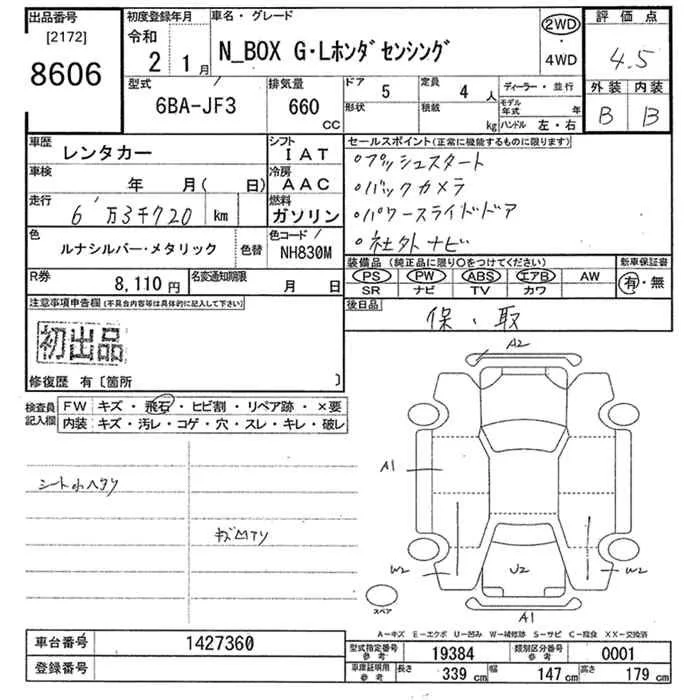 出品番号 初度登録年月 車名・グレード 2WD 評価点
[2172] 令和 ・ 4.5
8606 2 1月 N_BOX G・Lホンダセンシング 4WD
型式 排気量 ドア 定員 ディーラー・並行 外装 内装
6BA-JF3 660 5 4人 モデル年式 年 B B
CC 形状 積載 kg ハンドル 左・右
車歴 レンタカー シフト IAT セールスポイント(正常に機能するものに限ります)
車検 年 月( 日) 冷房 AAC °プッシュスタート
走行 6万3千720 km 燃料 ガソリン °バックカメラ
色 ルナシルバー・メタリック 色替 色コード NH830M °パワースライドドア
°社外ナビ
R券 8,110円 名変通知期限 月 日 装備品(純正品に限り○をつけてください) 新車保証書
PS PW ABS エアB AW 有・無
SR ナビ TV カワ
注意事項申告欄(不具合内容等は具体的に記入して下さい) 後日品
初出品 保・取
修復歴 有〔箇所 〕
検査員記入欄 FW キズ・飛石・ヒビ割・リペア跡・×要
内装 キズ・汚レ・コゲ・穴・スレ・キレ・破レ
A2
A1
シート小ヘタリ
W2 U2 W2
スペア
A1
A-キズ E-エクボ U-凹み W-補修跡 S-サビ C-腐食 XX-交換済
車台番号 1427360 型式指定番号 参考 19384 類別区分番号 参考 0001
登録番号 車庫証明用 参考 長さ 339cm 幅 147cm 高さ 179cm